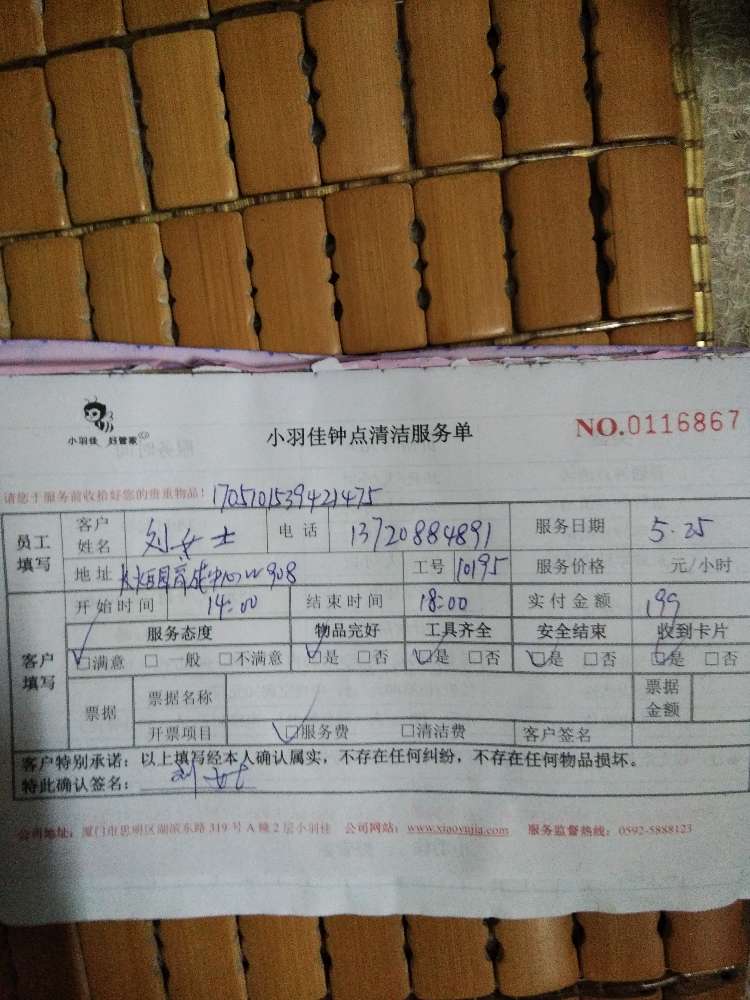 小羽佳 好管家
小羽佳钟点清洁服务单
NO.0116867
请您于服务前收拾好您的贵重物品！ 1705101539421475
员工填写 客户姓名 刘女士 电话 13720884891 服务日期 5.25
地址 908 工号 10195 服务价格 元/小时
客户填写 开始时间 14:00 结束时间 18:00 实付金额 199
服务态度 物品完好 工具齐全 安全结束 收到卡片
□满意 □一般 □不满意 □是 □否 □是 □否 □是 □否 □是 □否
票据 票据名称 票据金额
开票项目 □服务费 □清洁费 客户签名
客户特别承诺：以上填写经本人确认属实，不存在任何纠纷，不存在任何物品损坏。
特此确认签名：
公司地址：厦门市思明区湖滨东路 319 号 A 幢 2 层小羽佳 公司网站：www.xiaoyujia.com 服务监督热线：0592-5888123